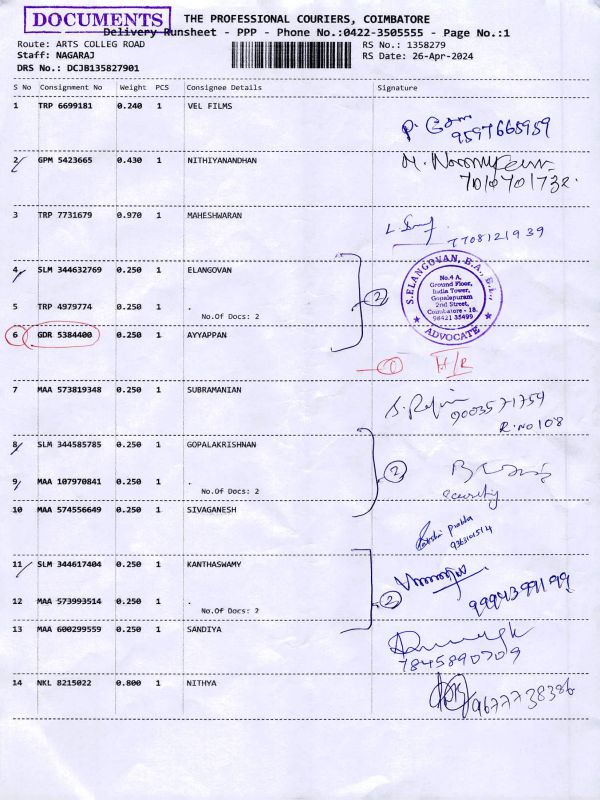 DOCUMENTS
THE PROFESSIONAL COURIERS, COIMBATORE
Delivery Runsheet - PPP - Phone No.:0422-3505555 - Page No.:1
Route: ARTS COLLEG ROAD
RS No.: 1358279
Staff: NAGARAJ
RS Date: 26-Apr-2024
DRS No.: DCJB135827901
S No Consignment No Weight PCS Consignee Details Signature
1 TRP 6699181 0.240 1 VEL FILMS
9597665959
2 GPM 5423665 0.430 1 NITHIYANANDHAN
7010701732.
3 TRP 7731679 0.970 1 MAHESHWARAN
7708121939
4 SLM 344632769 0.250 1 ELANGOVAN
S.ELANGOVAN, B.A., B.L.,
No.4 A,
Ground Floor,
India Tower,
Gopalapuram
2nd Street,
Coimbatore - 18.
98421 35499
★ ADVOCATE ★
2
5 TRP 4979774 0.250 1 .
No.Of Docs: 2
6 GDR 5384400 0.250 1 AYYAPPAN
7 MAA 573819348 0.250 1 SUBRAMANIAN
9003571754
R.NO 108
8 SLM 344585785 0.250 1 GOPALAKRISHNAN
2
Security
9 MAA 107970841 0.250 1 .
No.Of Docs: 2
10 MAA 574556649 0.250 1 SIVAGANESH
11 SLM 344617404 0.250 1 KANTHASWAMY
2
9994399199
12 MAA 573993514 0.250 1 .
No.Of Docs: 2
13 MAA 600299559 0.250 1 SANDIYA
7845890709
14 NKL 8215022 0.800 1 NITHYA
9677738386